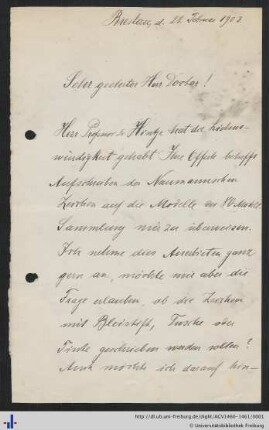 Breslau, d. 28. Februar 1902
Sehr geehrter Herr Doctor!
Herr Professor Dr Hintze hat die Liebens-
würdigkeit gehabt Ihre Offerte betreffs
Aufschreiben der Naumannschen
Zeichen auf die Modelle der
Sammlung mir zu überweisen.
Ich nehme dies Anerbieten ganz
gern an, möchte mir aber die
Frage erlauben, ob die Zeichen
mit Bleistift, Tusche oder
Tinte geschrieben werden sollen?
Auch möchte ich darauf hin-
http://dl.ub.uni-freiburg.de/diglit/ACV1460-1461/0001
Universitätsbibliothek Freiburg